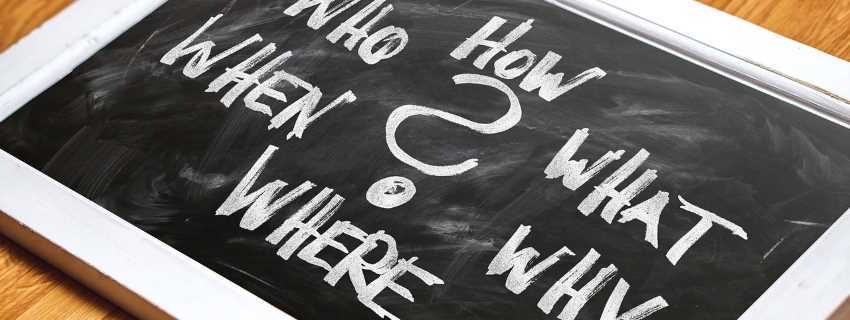 WHO
How
WHEN
?
WHAT
WHERE
WHY